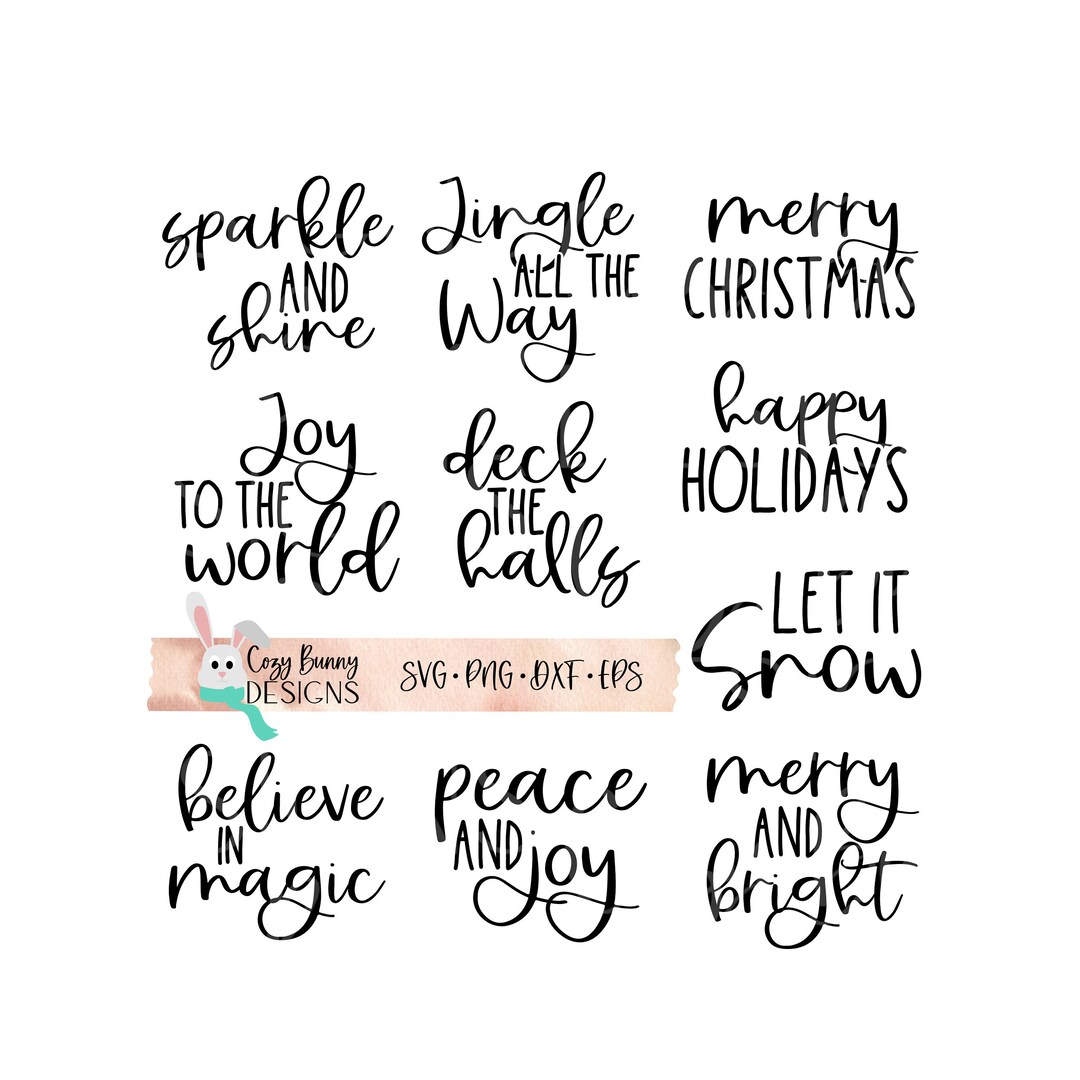 sparkle
AND
shine
Jingle
ALL THE
Way
merry
CHRISTMAS
Joy
TO THE
world
deck
THE
halls
happy
HOLIDAYS
LET IT
Snow
Cozy Bunny
DESIGNS
SVG • PNG • DXF • EPS
believe
IN
magic
peace
AND joy
merry
AND
bright